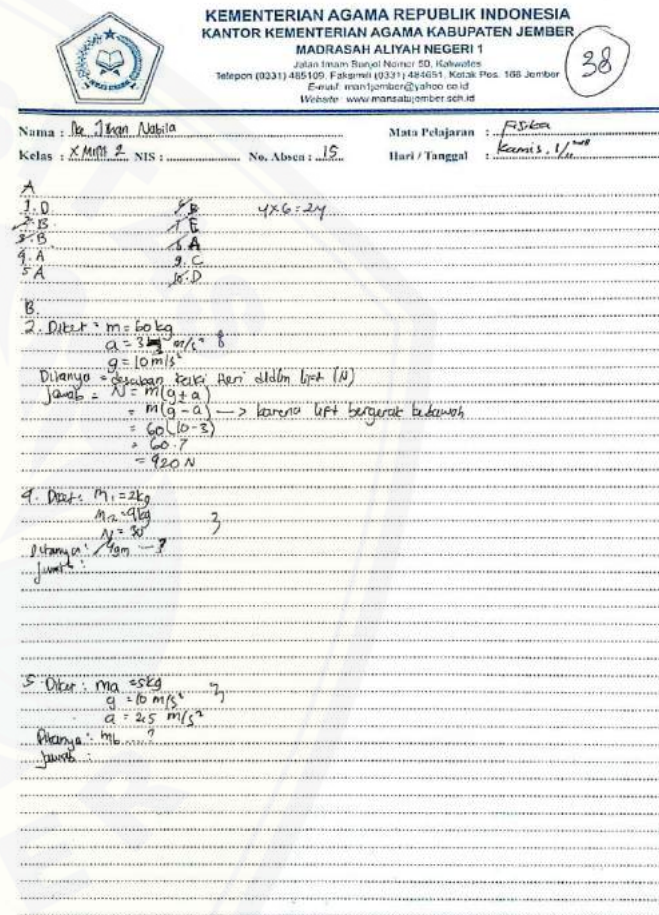 KEMENTERIAN AGAMA REPUBLIK INDONESIA
KANTOR KEMENTERIAN AGAMA KABUPATEN JEMBER
MADRASAH ALIYAH NEGERI 1
Jalan Imam Bonjol Nomor 50, Kaliwates
Telepon (0331) 485109, Faksimili (0331) 484651, Kotak Pos. 168 Jember
E-mail: man1jember@yahoo.co.id
Website: www.mansatujember.sch.id
38
Nama : Nabila Mata Pelajaran : Fisika
Kelas : X MIPA 2 NIS : No. Absen : 15 Hari / Tanggal : Kamis, 1/11
A
1. D 6. B 4x6=24
2. B 7. E
3. B 8. A
4. A 9. C
5 A 10. D
B.
2. Diket : m = 60 kg
a = 3 m/s² 8
g = 10 m/s²
Ditanya = desakan kaki Heri didlm lift (N)
Jawab = N = m(g ± a)
= m(g - a) —> karena lift bergerak kebawah
= 60 (10-3)
= 60.7
= 420 N
4. Diket : m₁ = 2kg
m₂ = 4kg 3
N = 30
Ditanya :
Jawab :
5. Diket : ma = 5kg 3
g = 10 m/s²
a = 2,5 m/s²
Ditanya : mb ....?
Jawab :